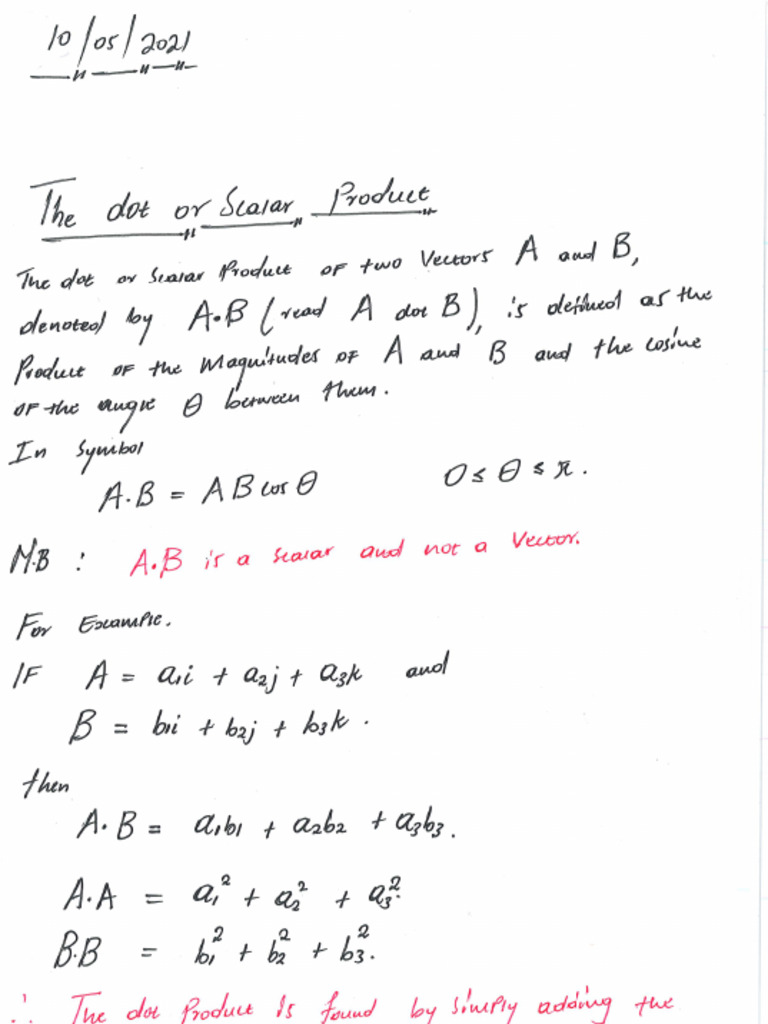 10/05/2021
The dot or Scalar Product
The dot or Scalar Product of two Vectors A and B,
denoted by A.B (read A dot B), is defined as the
Product of the Magnitudes of A and B and the cosine
of the angle θ between them.
In symbol
A.B = AB cos θ 0 ≤ θ ≤ π.
N.B : A.B is a scalar and not a Vector.
For Example.
If A = a₁i + a₂j + a₃k and
B = b₁i + b₂j + b₃k.
then
A.B = a₁b₁ + a₂b₂ + a₃b₃.
A.A = a₁² + a₂² + a₃².
B.B = b₁² + b₂² + b₃².
∴ The dot Product is found by simply adding the